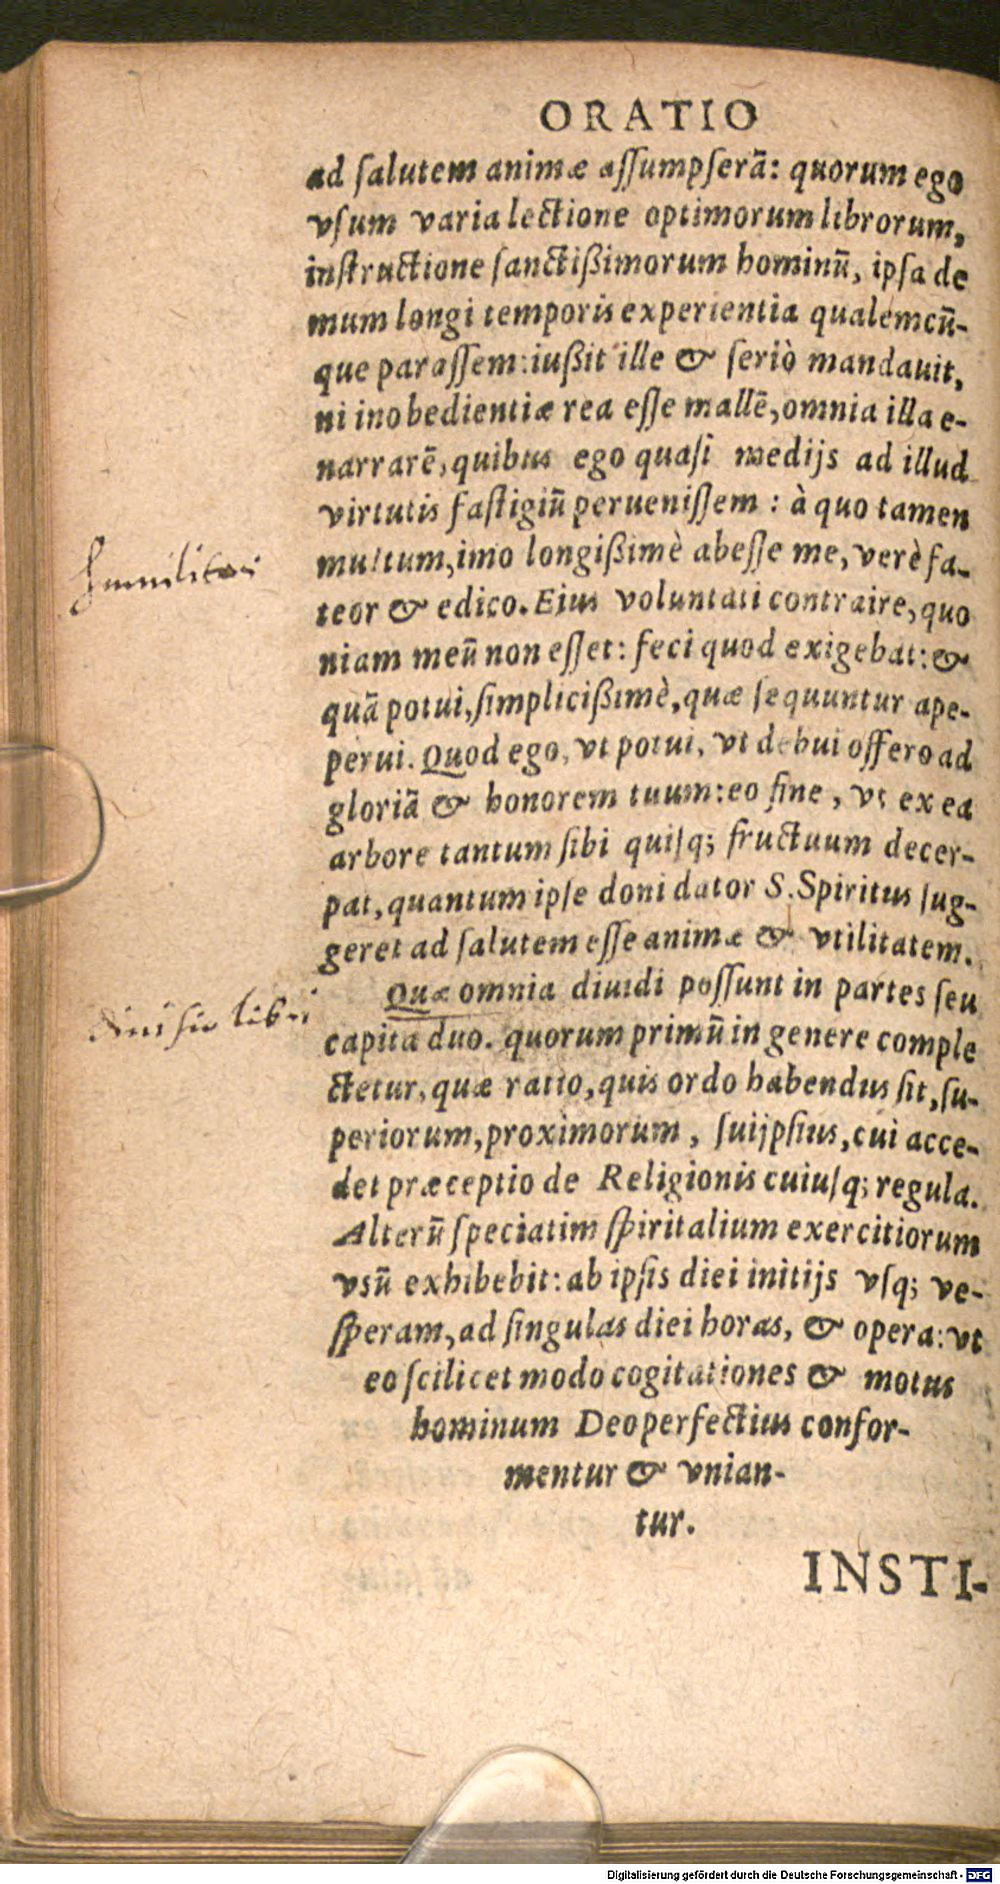 ORATIO
ad ſalutem animæ aſſumpſerā: quorum ego
vſum varia lectione optimorum librorum,
inſtructione ſanctißimorum hominū, ipſa de
mum longi temporis experientia qualemcū-
que paraſſem: iußit ille & ſeriò mandauit,
ni inobedientiæ rea eſſe mallē, omnia illa e-
narrarē, quibus ego quaſi medijs ad illud
virtutis faſtigiū perueniſſem: à quo tamen
multum, imo longißimè abeſſe me, verè fa-
teor & edico. Eius voluntati contraire, quo
niam meū non eſſet: feci quod exigebat: &
quā potui, ſimplicißimè, quæ ſequuntur ape-
perui. Quod ego, vt potui, vt debui offero ad
gloriā & honorem tuum: eo fine, vt ex ea
arbore tantum ſibi quiſq; fructuum decer-
pat, quantum ipſe doni dator S. Spiritus ſug-
geret ad ſalutem eſſe animæ & vtilitatem.
Quæ omnia diuidi poſſunt in partes ſeu
capita duo. quorum primū in genere comple
ctetur, quæ ratio, quis ordo habendus ſit, ſu-
periorum, proximorum, ſuijpſius, cui acce-
det præceptio de Religionis cuiuſq; regula.
Alterū ſpeciatim ſpiritalium exercitiorum
vsū exhibebit: ab ipſis diei initijs vſq; ve-
ſperam, ad ſingulas diei horas, & opera: vt
eo ſcilicet modo cogitationes & motus
hominum Deo perfectius confor-
mentur & vnian-
tur.
INSTI-
diuisio libri
Digitalisierung gefördert durch die Deutsche Forschungsgemeinschaft - DFG